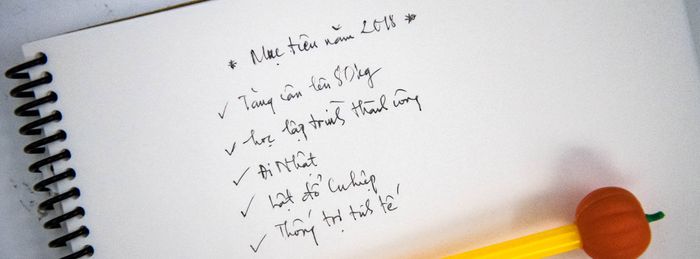 * Mục tiêu năm 2018 *
✓ Tăng cân lên 80kg
✓ học lập trình thành công
✓ Đi Nhật
✓ Lật đổ Cu hiệp
✓ Thống trị tinh tế